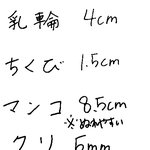 乳輪 4cm
ちくび 1.5cm
マンコ 8.5cm
※ぬれやすい
クリ 5mm